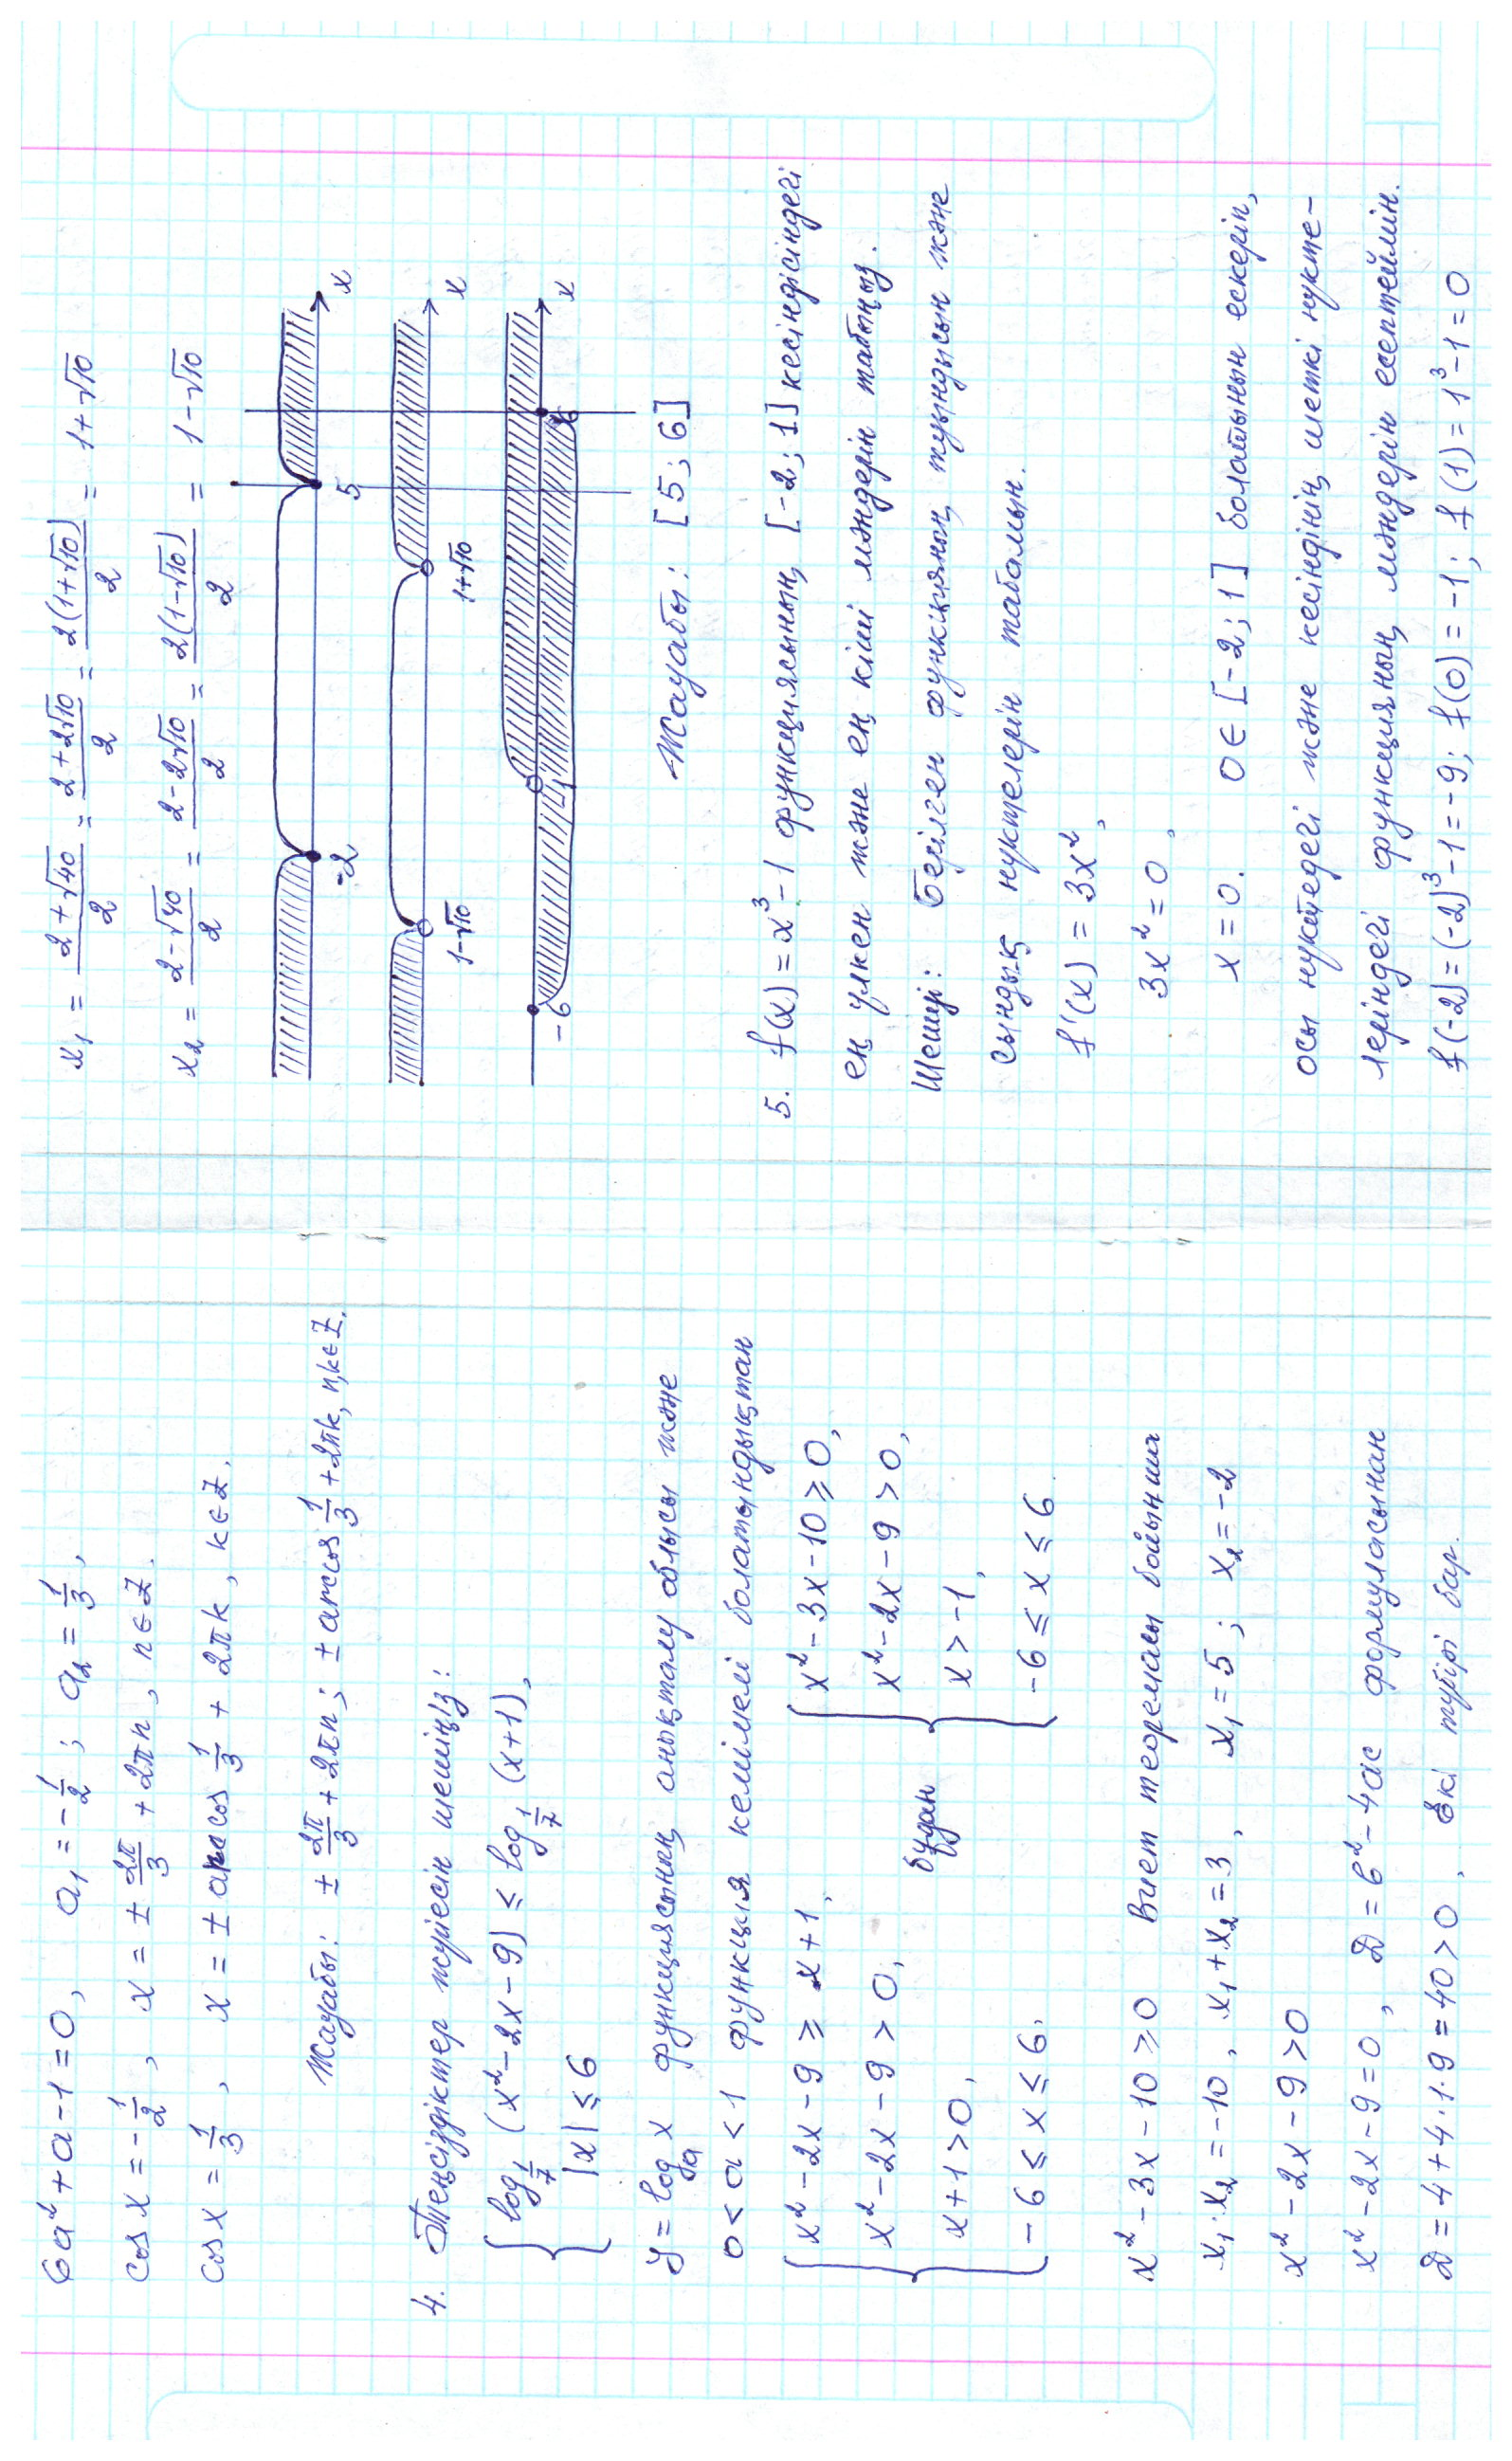 6a² + a - 1 = 0, a₁ = -1/2; a₂ = 1/3,
cos x = -1/2, x = ± 2π/3 + 2πn, n∈Z.
cos x = 1/3, x = ± arccos 1/3 + 2πk, k∈Z.
Жауабы: ± 2π/3 + 2πn; ± arccos 1/3 + 2πk, n,k∈Z.
4. Теңсіздіктер жүйесін шешіңіз:
{ log_{1/7} (x² - 2x - 9) ≤ log_{1/7} (x+1),
|x| ≤ 6
y = logₐ x функциясының анықталу облысы және
0 < a < 1 функция кемімелі болатындықтан
{ x² - 2x - 9 ≥ x + 1, { x² - 3x - 10 ≥ 0,
x² - 2x - 9 > 0, бұдан x² - 2x - 9 > 0,
x + 1 > 0, x > -1,
-6 ≤ x ≤ 6. -6 ≤ x ≤ 6
x² - 3x - 10 ≥ 0 Виет теоремасы бойынша
x₁·x₂ = -10, x₁ + x₂ = 3, x₁ = 5; x₂ = -2
x² - 2x - 9 > 0
x² - 2x - 9 = 0, D = b² - 4ac формуласынан
D = 4 + 4·1·9 = 40 > 0, екі түбірі бар.
x₁ = (2 + √40)/2 = (2 + 2√10)/2 = 2(1 + √10)/2 = 1 + √10
x₂ = (2 - √40)/2 = (2 - 2√10)/2 = 2(1 - √10)/2 = 1 - √10
-2 5 x
1-√10 1+√10 x
-6 -1 6 x
Жауабы: [5; 6]
5. f(x) = x³ - 1 функциясының [-2; 1] кесіндісіндегі
ең үлкен және ең кіші мәндерін табыңыз.
Шешуі: Берілген функцияның туындысын және
сындық нүктелерін табамын.
f'(x) = 3x²,
3x² = 0,
x = 0. 0 ∈ [-2; 1] болатынын ескеріп,
осы нүктедегі және кесіндінің шеткі нүкте-
леріндегі функцияның мәндерін есептеймін.
f(-2) = (-2)³ - 1 = -9; f(0) = -1; f(1) = 1³ - 1 = 0